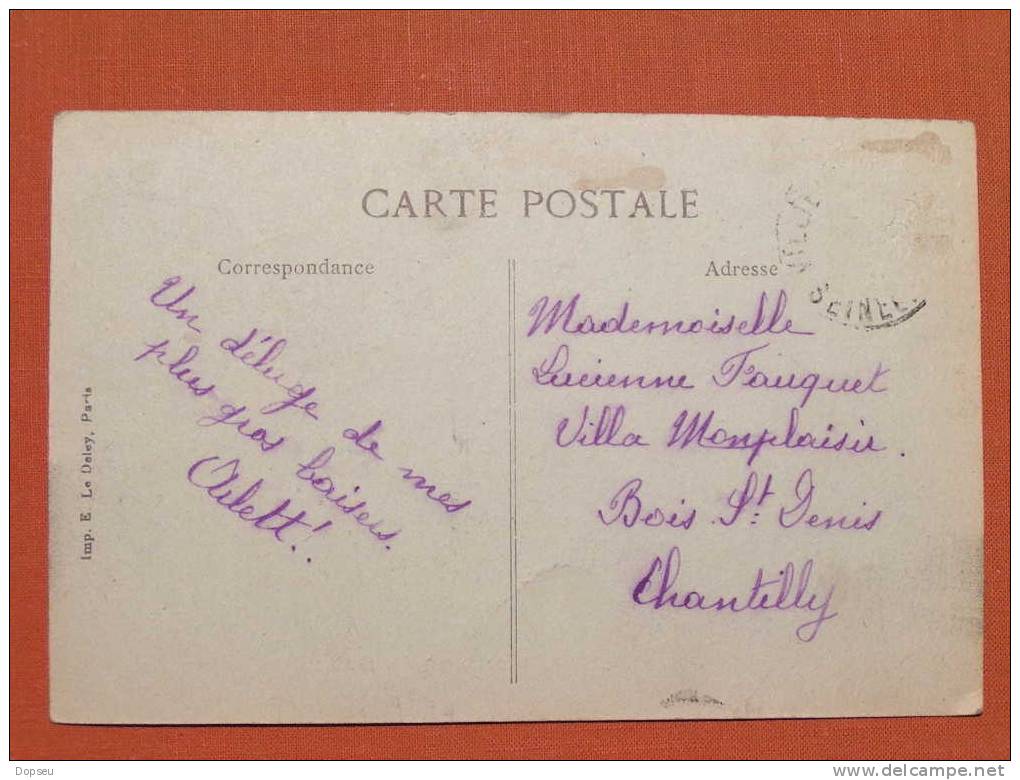 CARTE POSTALE
Correspondance
Adresse
Un déluge de mes
plus gros baisers.
Arlett!.
Mademoiselle
Lucienne Fauquet
Villa Monplaisir.
Bois St. Denis
Chantilly
Imp. E. Le Deley, Paris
Dopseu
www.delcampe.net